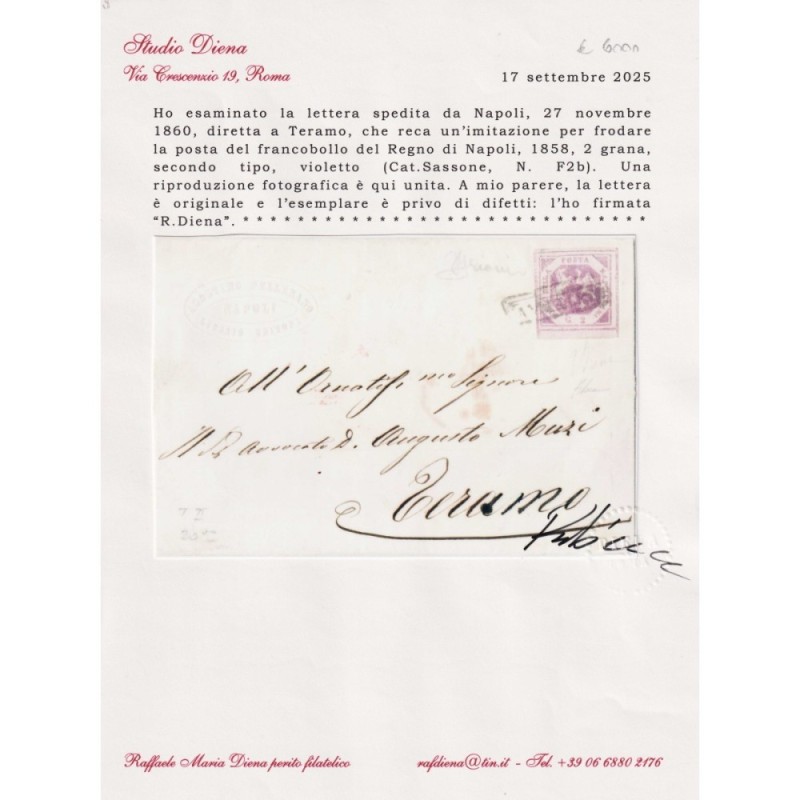 Studio Diena
Via Crescenzio 19, Roma
17 settembre 2025
Ho esaminato la lettera spedita da Napoli, 27 novembre
1860, diretta a Teramo, che reca un'imitazione per frodare
la posta del francobollo del Regno di Napoli, 1858, 2 grana,
secondo tipo, violetto (Cat.Sassone, N. F2b). Una
riproduzione fotografica è qui unita. A mio parere, la lettera
è originale e l'esemplare è privo di difetti: l'ho firmata
“R.Diena”. * * * * * * * * * * * * * * * * * * * * * * * * * * * * * *
POSTA
G. 2
NAPOLI
All' Ornatiss mo Signore
Il Avvocato D. Augusto Muzi
Teramo
Raffaele Maria Diena perito filatelico
rafdiena@tin.it - Tel. +39 06 6880 2176